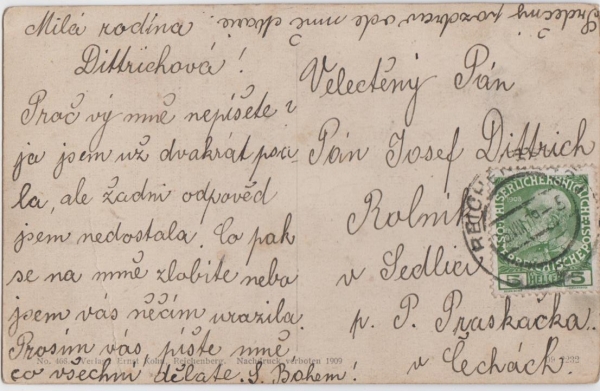 Srdečný pozdrav ode mně
Milá rodina
Dittrichová!
Proč vý mně nepíšete?
ja jsem už dvakrát psa-
la, ale žadni odpověd
jsem nedostala. Co pak
se na mně zlobíte nebo
jsem vás něčím urazila.
Prosím vás, pište mně,
co všechni dělate. S. Bohem!
Velectěný Pán
Pán Josef Dittrich
Rolník
v Sedlici
p. P. Praskačka.
v Čechách.
REICHEN
5 HELLER 5
No. 468. Verlag Ernst Kohn, Reichenberg. Nachdruck verboten 1909
09 2232